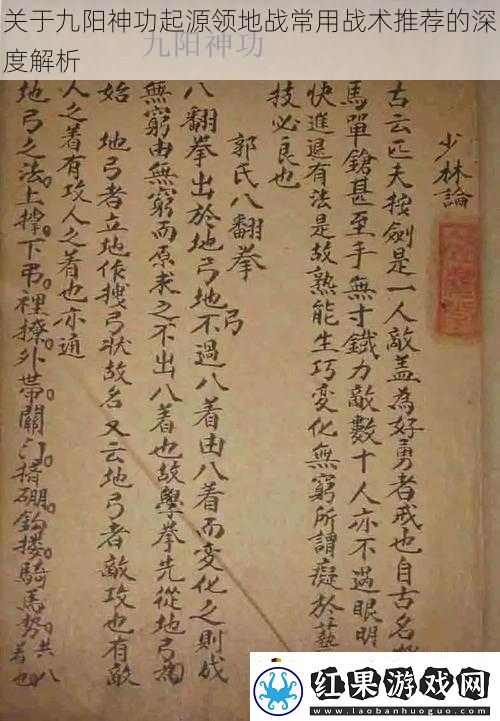 关于九阳神功起源领地战常用战术推荐的深
度解析
九阳神功
少林論
古云匹夫按劍是一人敵盖為好勇者戒也自古名
馬單鎗甚至手無寸鐵力敵數十人亦不過眼明
快進退有法是故熟能生巧變化無窮所謂癡於藝
技必良也
郭氏八翻拳
八翻拳出於地弓地不過八着由八着而變化之則成
弓
無窮由無窮而原求之不出八着也故學拳先從地弓為
始 地弓者立地作拽弓狀故名 又云地弓者敵攻也有敵
人之着有攻人之着也亦通
地弓之法上撑下弔裡撩外帶關门搢硼鈎搂騎馬勢共八
着也
红果游戏网
www.laobanhunou.com